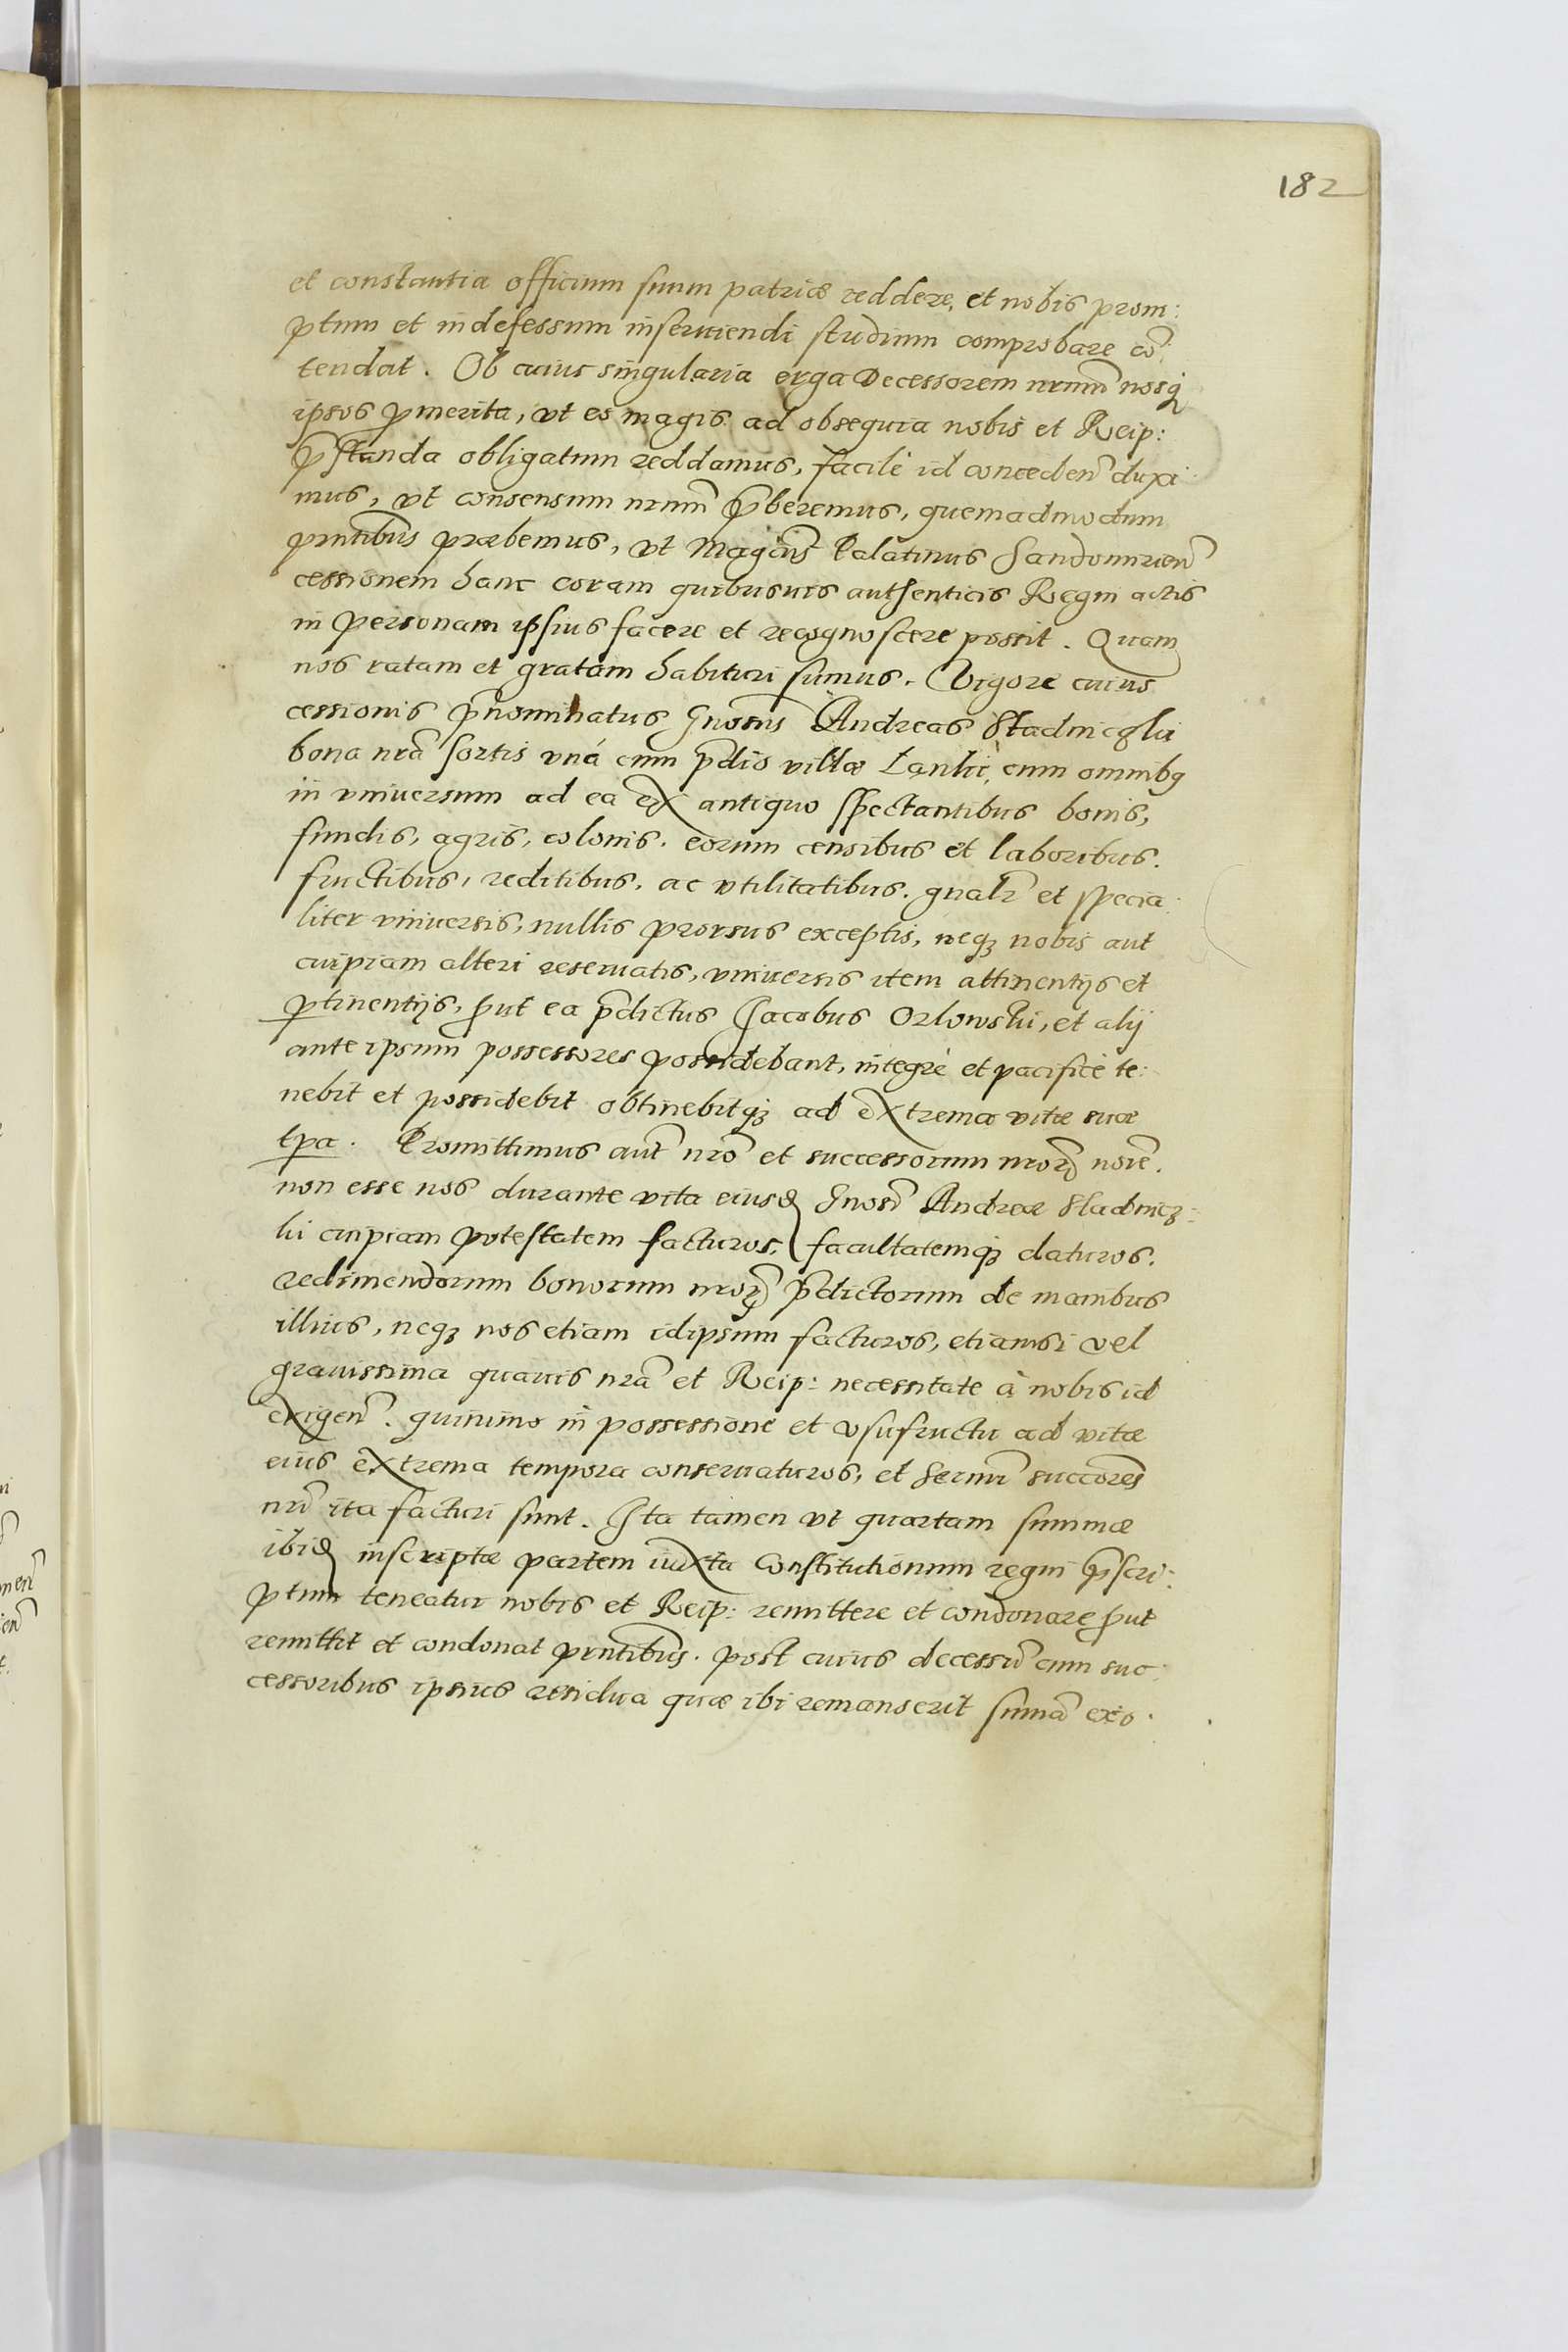 182
et constantia officium suum patriæ reddere, et nobis prom:
ptum et indefessum inseruiendi studium comprobare cõ:
tendat. Ob cuius singularia erga Decessorem nrum̃ nosq;
ipsos p̃merita, vt eo magis ad obsequia nobis et Reip:
p̃standa obligatum reddamus, facilè id conceden̄ duxi
mus, vt consensum nrum̃ p̃beremus, quemadmodum
pn̄tibus præbemus, vt Magcus̃ Palatinus Sandomirien̄
cessionem hanc coram quibusuis authenticis Regni actis
in personam ipsius facere et recognoscere possit. Quam
nos ratam et gratam habituri sumus. Vigore cuius
cessionis p̃nominatus Gnosus̃ Andreas Stadniczki
bona nrã sortis vná cum p̃dio villæ Łanki, cum omnibq
in vniuersum ad ea ex antiquo spectantibus bonis,
fundis, agris, colonis, eorum censibus et laboribus.
fructibus, reditibus, ac vtilitatibus. gnalr̃ et specia:
liter vniuersis, nullis prorsus exceptis, neqz nobis aut
cuipiam alteri reseruatis, vniuersis item attinentijs et
ꝑtinentijs, ꝓut ea p̃dictus Jacobus Orlowski, et alij
ante ipsum possessores possidebant, integrè et pacificè te:
nebit et possidebit obtinebitqz ad extrema vitæ suæ
tpa. Promittimus aut̃ nrõ et successorum nrorꝝ noĩe.
non esse nos durante vita eiusd Gnosi̇ Andreæ Stadnicz:
ki cuipiam potestatem facturos, facultatemqz daturos.
redimendorum bonorum nrorꝝ p̃dictorum de manibus
illius, neqz nos etiam idipsum facturos, etiamsi vel
grauissima quauis nrã et Reip: necessitate à nobis id
exigen̄. quinimo in possessione et vsufructu ad vitæ
eius extrema tempora conseruaturos, et Sermi̇ succores̃
nrĩ ita facturi sunt. Ita tamen vt quartam summæ
ibid inscriptæ partem iuxta Constitutionum regni p̃scri:
ptum teneatur nobis et Reip: remittere et condonare ꝓut
remittit et condonat pn̄tibus. post cuius decessũ cum suc:
cessoribus ipsius residua quæ ibi remanserit sum̃a exo.